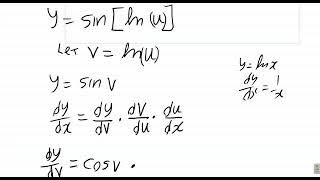 y = sin[ln(u)]
Let v = ln(u)
y = sin v
dy/dx = dy/dv · dv/du · du/dx
dy/dv = cos v ·
y = ln x
dy/dx = 1/x